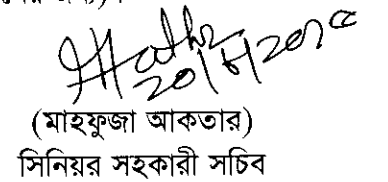 ২০/৮/২০১৫
(মাহফুজা আকতার)
সিনিয়র সহকারী সচিব